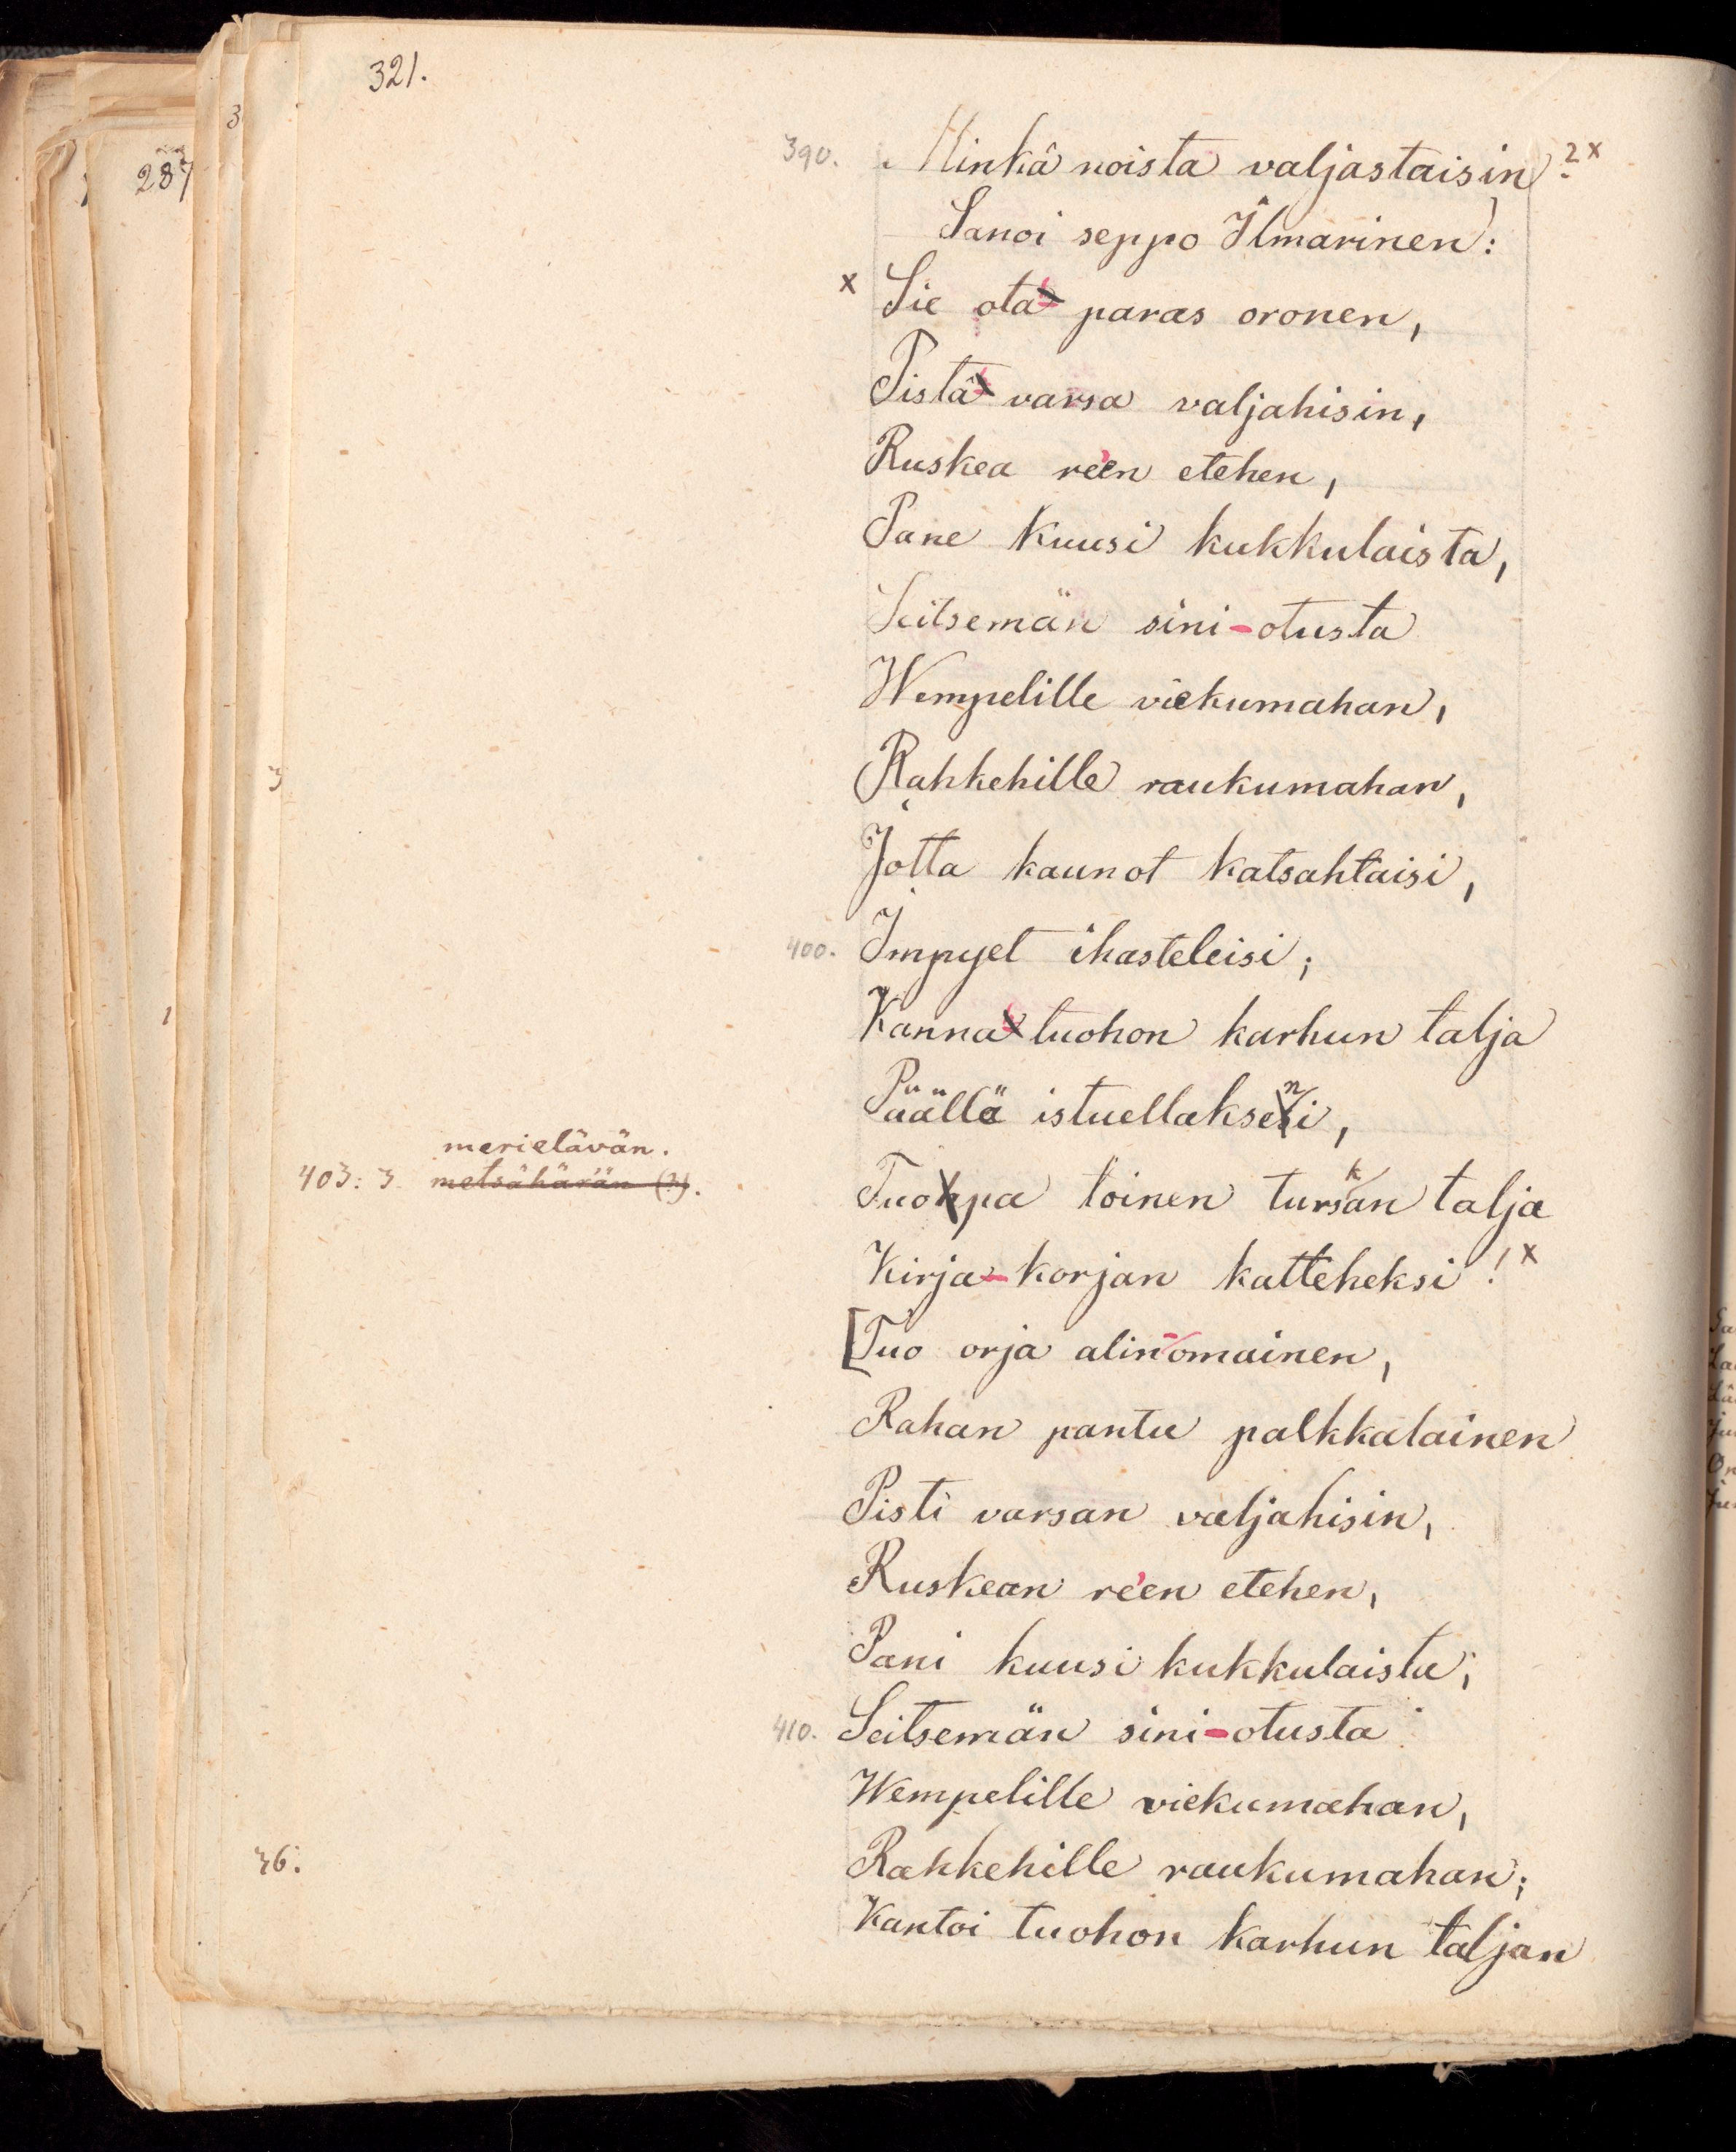 321.
287
3
390. Minkä noista valjastaisin? x
Sanoi seppo Ilmarinen:
x Sie ota paras oronen,
Pistä varsa valjahisin,
Ruskea re'en etehen,
Pane kuusi kukkulaista,
Seitsemän sini-otusta
Wempelille viekumahan,
Rahkehille raukumahan,
Jotta kaunot katsahtaisi,
400. Impyet ihasteleisi;
Kanna tuohon karhun talja
Päällä istuellakseni,
merielävän.
403: 3 metsähärän (?).
Tuopa toinen turkan talja
Kirja-korjan katteheksi! x
[Tuo orja alin-omainen,
Rahan pantu palkkalainen
Pisti varsan valjahisin,
Ruskean re'en etehen,
Pani kuusi kukkulaista,
410. Seitsemän sini-otusta
Wempelille viekumahan,
36.
Rahkehille raukumahan;
Kantoi tuohon karhun taljan